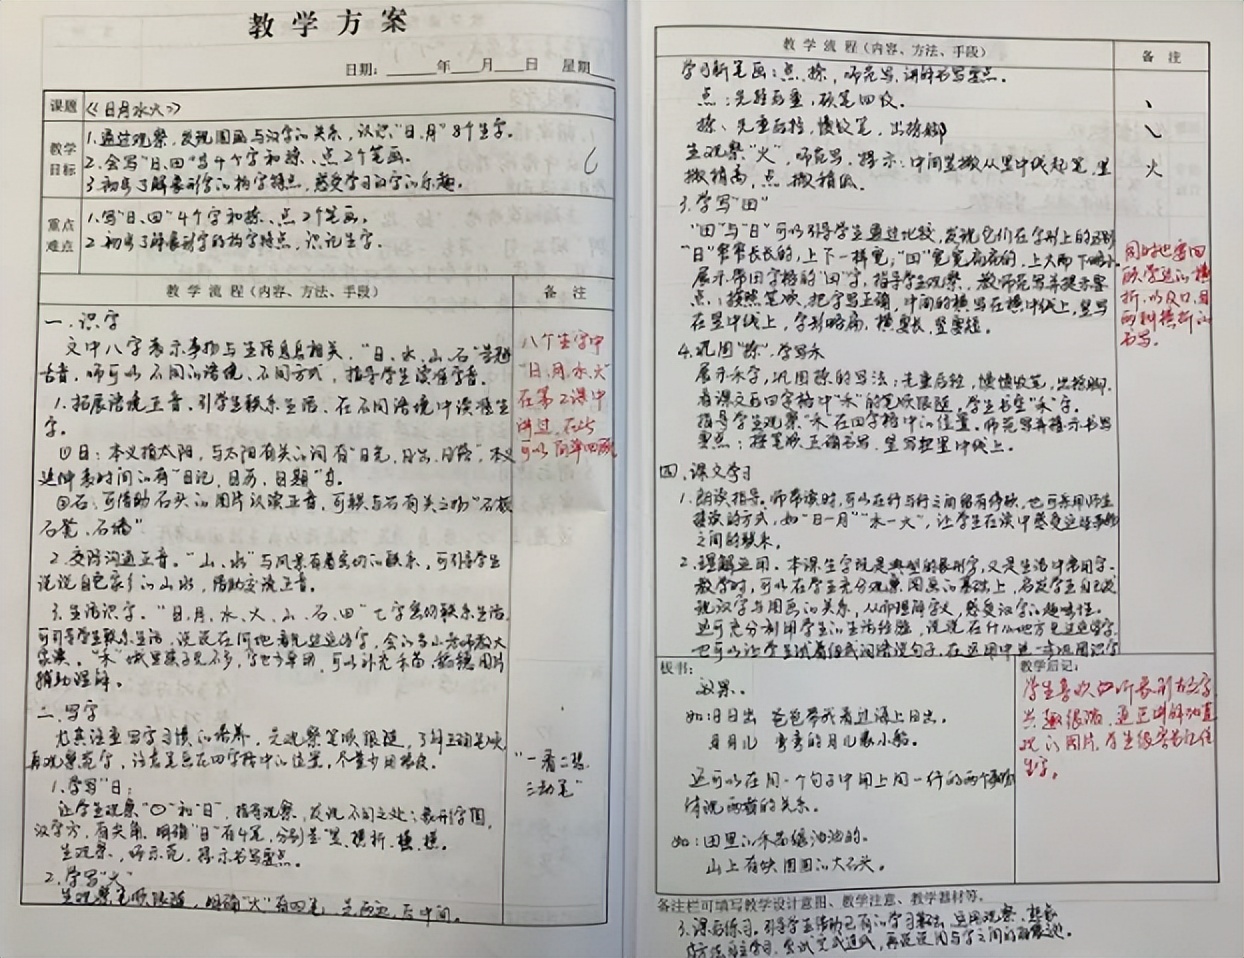 教学方案
日期：____年___月___日 星期___
课题 《日月水火》
教学目标
1.通过观察，发现图画与汉字的关系，认识"日、月"8个生字。
2.会写"日、田"等4个字和捺、点2个笔画。
3.初步了解象形字的构字特点，感受学习汉字的乐趣。
重点难点
1.写"日、田"4个字和捺、点2个笔画。
2.初步了解象形字的构字特点，识记生字。
教学流程（内容、方法、手段） 备注
一.识字
文中八字表示事物与生活息息相关，"日、水、山、石"等是
古音，师可以不同的语境、不同方式，指导学生读准字音。
1.拓展语境正音。引学生联系生活、在不同语境中读准生
字。
①日：本义指太阳，与太阳有关的词有"日光、日出、日落"，本义
延伸表时间的有"日记、日历、日期"等。
②石：可借助石头的图片认读正音，可联与石有关之物"石板
石凳、石墙"
2.交际沟通正音。"山、水"与风景有着密切的联系，可引导学生
说说自己家乡的山水，借助交流正音。
3.生活识字。"日、月、水、火、山、石、田"七字密切联系生活，
可引导学生联系生活，说说在何地看见过这些字，会的当小老师教大
家读，"禾"城里孩子见不多，了也少单用，可以补充禾苗、稻穗图片
辅助理解。
二.写字
尤其注重写字习惯的培养，先观察笔顺跟随，了解正确笔顺，
再观察范字，注意笔画在田字格中的位置，尽量少用橡皮。
1.学写"日：
让学生观察"〇"和"日"，指导观察，发现不同之处：象形字圆，
汉字方，有尖角。明确"日"有4笔，分别是竖、横折、横、横。
生观察，师示范，提示书写要点。
2.学写"火"
生观察笔顺跟随，明确"火"有四笔，先两边，后中间。
八个生字中
"日、月、水、火"
在第2课中
讲过，在此
可以简单回顾
"一看二想
三动笔"
教学流程（内容、方法、手段） 备注
学习新笔画：点、捺，师范写，讲解书写要点。
点：先轻后重，顿笔回收。
捺、先重后轻，慢收笔，出捺脚
生观察"火"，师范写，提示：中间竖撇从竖中线起笔，竖
撇稍高，点、撇稍低。
丶
㇏
火
3.学写"田"
"田"与"日"可以引导学生通过比较，发现它们在字形上的区别
"日"窄窄长长的，上下一样宽；"田"宽宽扁扁的，上大而下略小
展示带田字格的"田"字，指导学生观察，教师范写并提示要
点：按照笔顺，把字写正确，中间的横写在横中线上，竖写
在竖中线上，字形略扁，横要长，竖要短。
同时也要回
顾学过的横
折，以及口、日
两种横折的
书写。
4.巩固"捺"，学写禾
展示禾字，巩固捺的写法：先重后轻，慢慢收笔，出捺脚。
看课文后田字格中"禾"的笔顺跟随，学生书空"禾"字。
指导学生观察"禾"在田字格中的位置。师范写并提示书写
要点：按笔顺正确书写，竖写在竖中线上。
四.课文学习
1.朗读指导。师带读时，可以在行与行之间留有停顿，也可采用师生
接读的方式，如"日一月""水一火"，让学生在读中感受这些事物
之间的联系。
2.理解运用。本课生字既是典型的象形字，又是生活中常用字。
教学时，可以在学生充分观察图画的基础上，启发学生自己发
现汉字与图画的关系，从而理解字义，感受汉字的趣味性。
还可充分利用学生的生活经验，说说在什么地方见过这些字，
也可以让学生试着组成词语说句子，在运用中进一步巩固识字
板书：
效果。
如：日 日出 爸爸带我看过海上日出。
月 月儿 弯弯的月儿像小船。
还可以在用一个句子中用上同一行的两个事物
体现两者的关系。
如：田里的禾苗绿油油的。
山上有块圆圆的大石头。
教学后记：
学生喜欢
兴趣很浓，通过讲解和直
观的图片，学生很容易记住
生字。
备注栏可填写教学设计意图、教学注意、教学器材等。
3.课后练习。引导学生借助已有的学习基础，运用观察、想象
等方法自主学习，尝试完成连线，再说说图与字之间的联系。